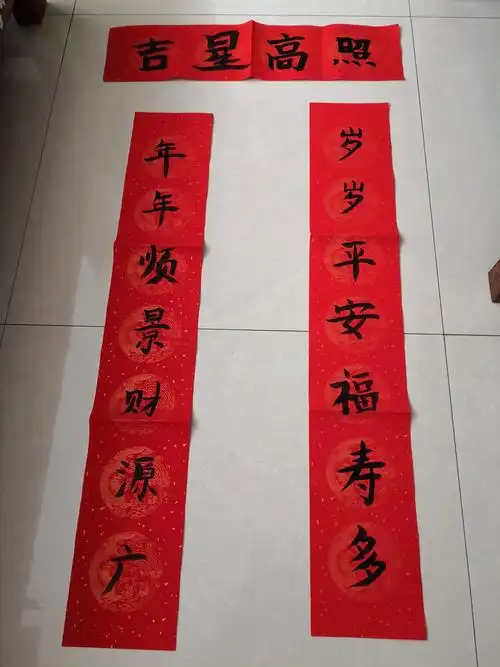 吉星高照
年年顺景财源广
岁岁平安福寿多